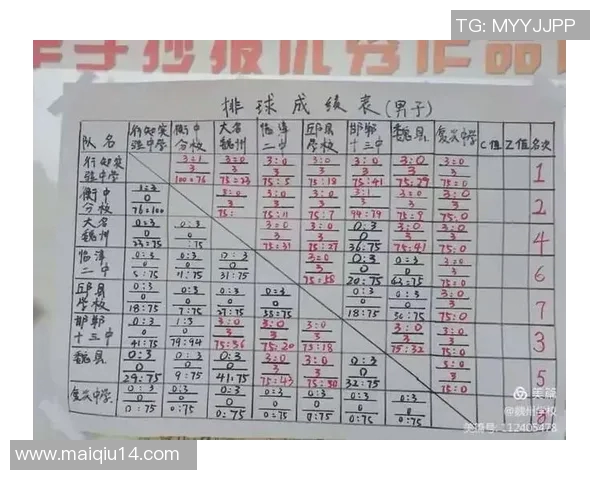 TG: MYYJJPP
手抄报优秀作品
排球成绩表(男子)
队名 行知实验中学 衡中分校 大名魏州 临漳二中 邱县学校 邯郸十三中 魏县 复兴中学 C值 Z值 名次
行知实验中学 3:1 3 100=76 3:0 3 75=23 3:0 3 75:5 3:0 3 75:18 3:0 3 75:41 3:0 3 75=29 3:0 3 75=0 1
衡中分校 1=3 0 76=100 3:0 3 75: 3:0 3 75:11 3:0 3 75:7 3:1 3 94=79 3:0 3 75=9 3:0 3 75:0 2
大名魏州 0=3 0 23=75 0:3 0 :75 3:0 3 75=31 3:0 3 75:27 0:3 0 36:75 3:0 3 75:41 3:0 3 75:0 4
临漳二中 0:3 0 5:75 0:3 0 11:75 0:3 0 31:75 3:0 3 0:3 0 20:75 0:3 0 3:0 3 75:0 6
邱县学校 0:3 0 18:75 0:3 0 7:75 0:3 0 27:75 0:3 0 0:3 0 18:75 0:3 0 3:0 3 75:0 7
邯郸十三中 0:3 0 41:75 1:3 0 79:94 3:0 3 75=36 3:0 3 75=20 3:0 3 75:18 3:0 3 75:32 3:0 3 75:0 3
魏县 0:3 0 29:75 0:3 0 9:75 0:3 0 41:75 3:0 3 75:43 3:0 3 0:3 0 32:75 3:0 3 75:0 5
复兴中学 0:3 0 0:75 0:3 0 0:75 0:3 0 0:75 0:3 0 0:75 0:3 0 0:75 0:3 0 0:75 0:3 0 0:75 8
美篇
美篇号: 112405478
www.maiqiu14.com